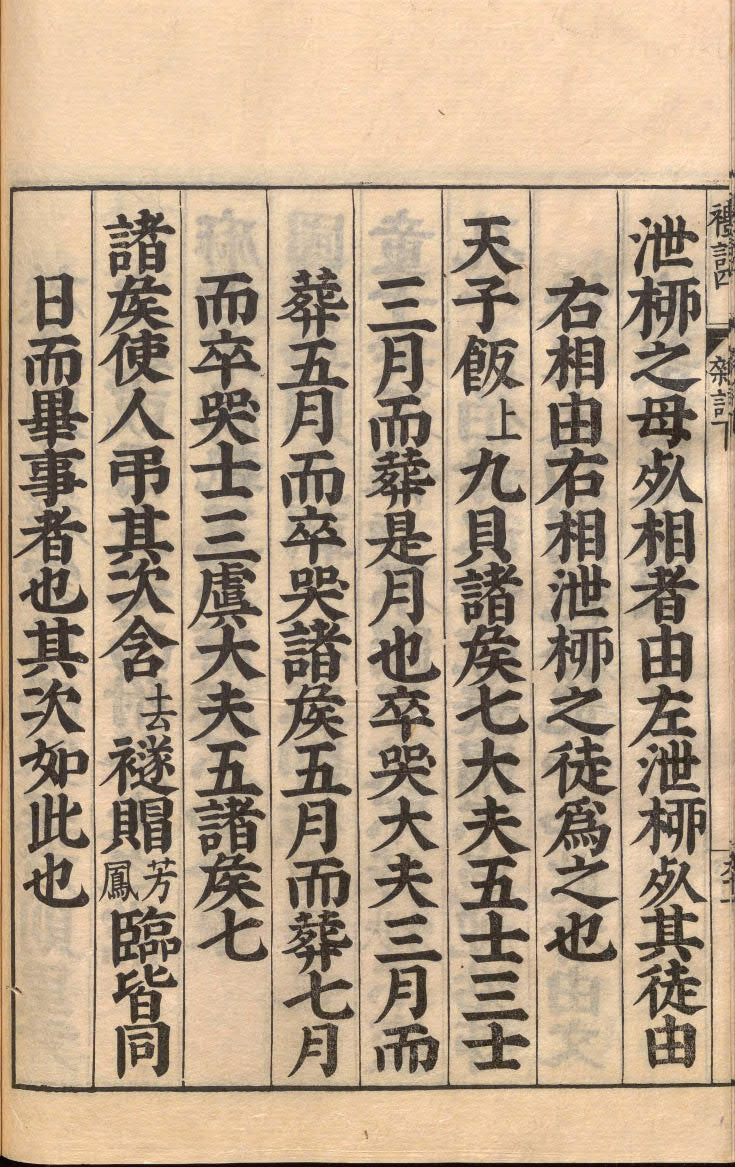 禮記四 雜記下
泄桺之母𣦸相者由左泄桺𣦸其徒由
右相由右相泄桺之徒爲之也
天子飯上九貝諸矦七大夫五士三士
三月而葬是月也卒哭大夫三月而
葬五月而卒哭諸矦五月而葬七月
而卒哭士三虞大夫五諸矦七
諸矦使人弔其次含去襚賵芳鳳臨皆同
日而畢事者也其次如此也